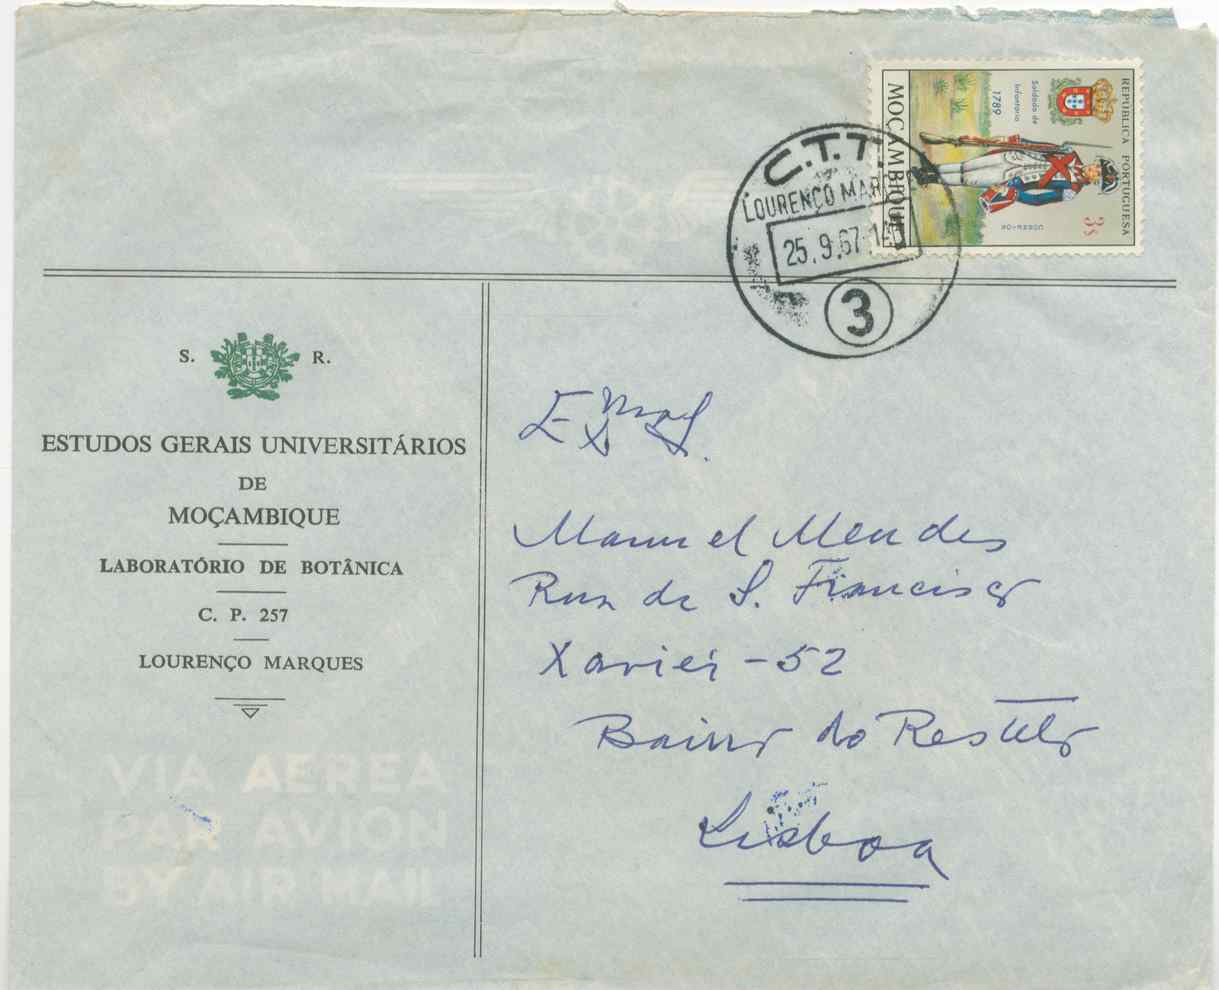 REPÚBLICA PORTUGUESA
3s
Soldado de
Infantaria
1789
MOÇAMBIQUE
C.T.T.
LOURENÇO MAR
25.9.67
3
S. R.
ESTUDOS GERAIS UNIVERSITÁRIOS
DE
MOÇAMBIQUE
LABORATÓRIO DE BOTÂNICA
C. P. 257
LOURENÇO MARQUES
VIA AEREA
PAR AVION
BY AIR MAIL
Exmos.
Manuel Mendes
Rua de S. Francisco
Xavier - 52
Bairro do Restelo
Lisboa